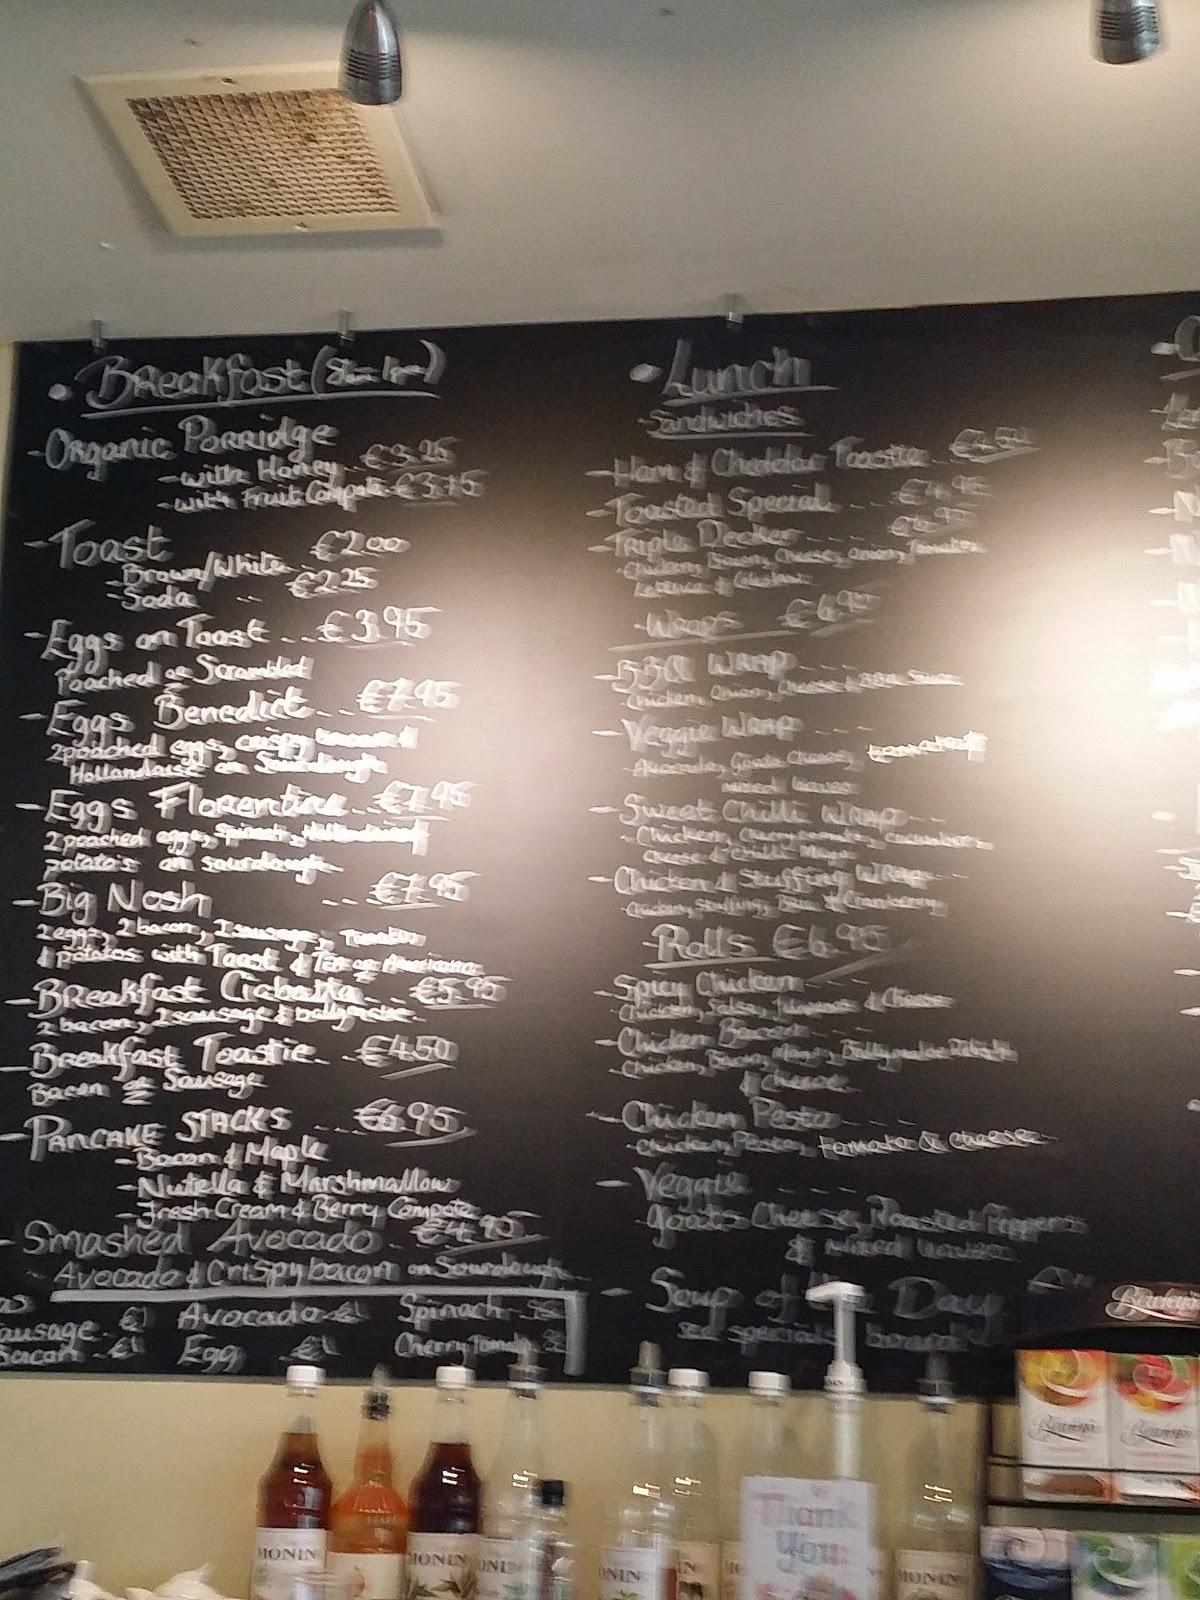 • Breakfast (8am-
- Organic Porridge
- with Honey .. €3.25
- with Fruit Compote. €3.75
- Toast €2.00
- Brown/White
- Soda .. €2.25
- Eggs on Toast ... €3.95
Poached or Scrambled
- Eggs Benedict... €7.95
2 poached eggs, crispy bacon &
Hollandaise on Sourdough
- Eggs Florentine ... €7.95
2 poached eggs, spinach, Hollandaise
potato's on sourdough
- Big Nosh .... €7.95
2 eggs, 2 bacon, 2 sausage, Tomato
& potatos with Toast & Tea or Americano
- Breakfast Ciabatta .. €5.95
2 bacon, 2 sausage & ballymaloe
- Breakfast Toastie .. €4.50
Bacon or Sausage
- Pancake STACKS ... €6.95
- Bacon & Maple
- Nutella & Marshmallow
- Fresh Cream & Berry Compote
- Smashed Avocado .. €4.95
- Avocado & Crispy bacon on Sourdough
Sausage €1 Avocado €1 Spinach
Bacon €1 Egg €1 Cherry Tomato
• Lunch
Sandwiches
- Ham & Cheddar Toastie .. €4.50
- Toasted Special ... €4.95
- Triple Decker ... €6.95
- Chicken, Bacon, Cheese, onion, Tomato
Lettuce & Coleslaw
- Wraps €6.95
- BBQ WRAP ....
- Chicken, Onion, Cheese & BBQ Sauce
- Veggie Wrap ....
- Avocado, Goats Cheese, tomatoes
mixed leaves
- Sweet Chilli WRAP ...
- Chicken, cucumber,
cheese & Chilli Mayo
- Chicken & Stuffing WRap ...
- Chicken, Stuffing, & Cranberry
- Rolls €6.95
- Spicy Chicken ...
- Chicken, Salsa, Jalapenos & Cheese
- Chicken Bacon ...
- Chicken, Bacon, Mayo, Ballymaloe Relish
& Cheese
- Chicken Pesto ....
- Chicken, Pesto, tomato & cheese
- Veggie ....
goats Cheese, Roasted Peppers
& Mixed leaves
- Soup of the Day
see specials board
Bewley's
Bewley's Bewley's
Thank
you
MONIN MONIN MONIN